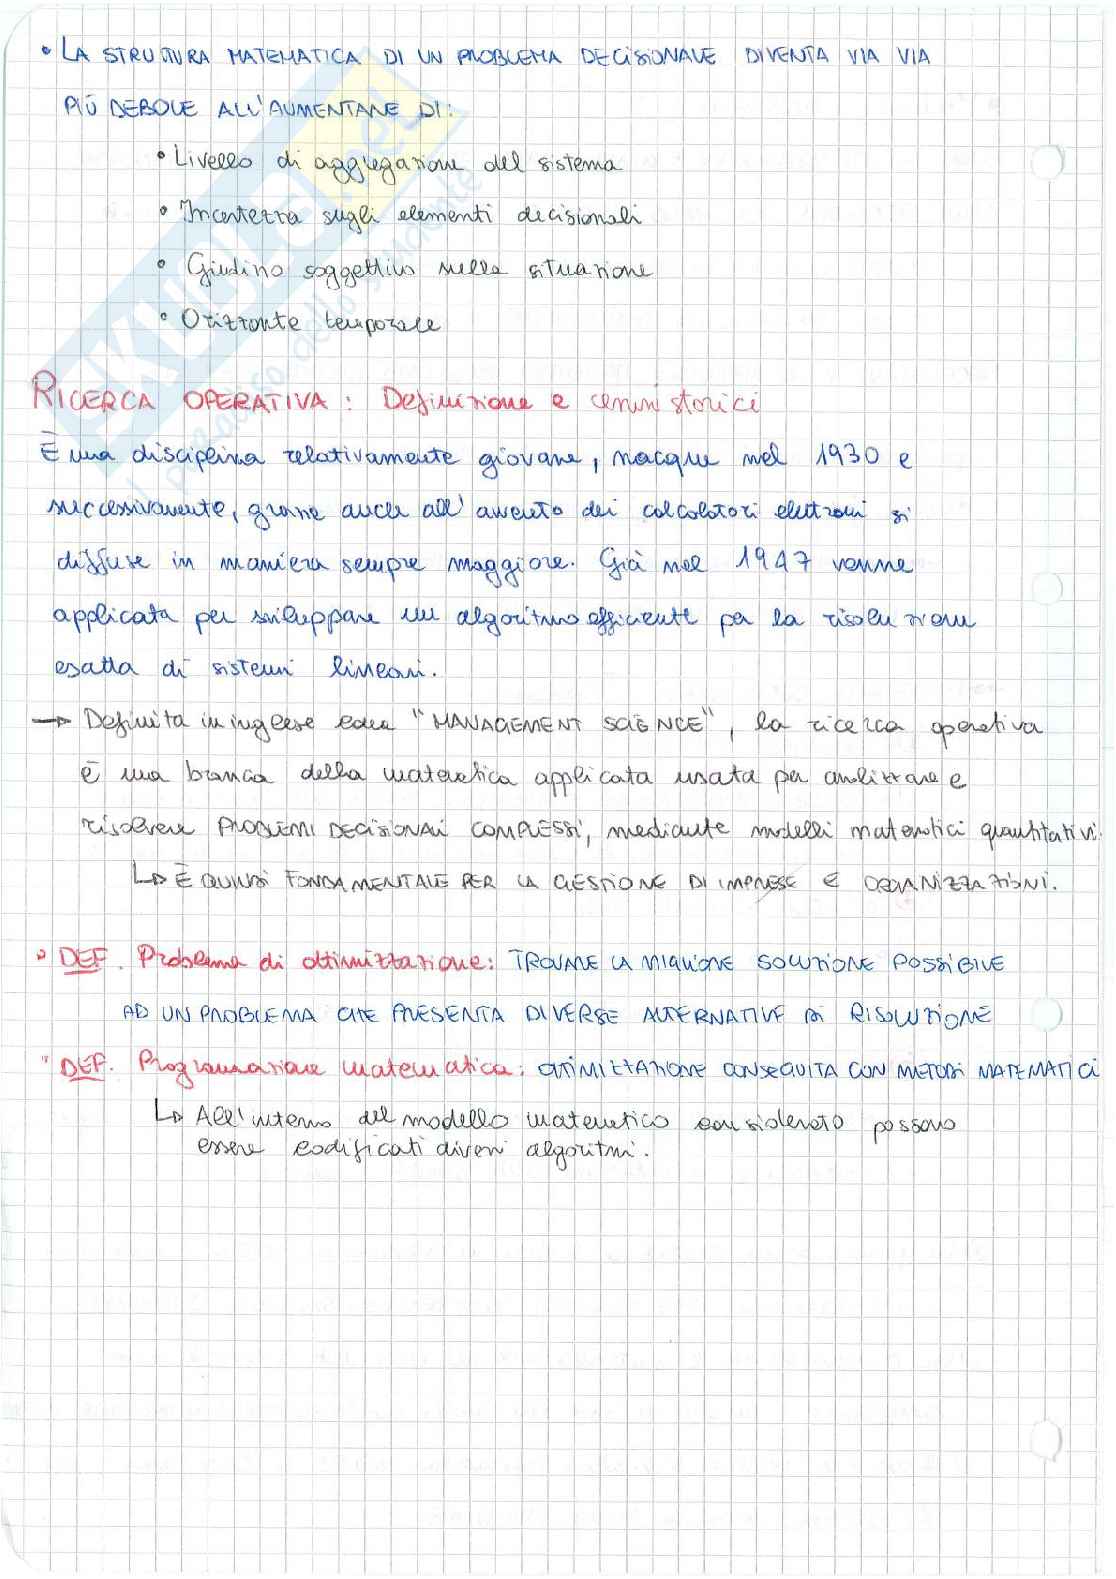 • LA STRUTTURA MATEMATICA DI UN PROBLEMA DECISIONALE DIVENTA VIA VIA
PIÙ DEBOLE ALL'AUMENTARE DI:
• Livello di aggregazione del sistema
• Incertezza sugli elementi decisionali
• Giudizio soggettivo nella situazione
• Orizzonte temporale
RICERCA OPERATIVA: Definizione e cenni storici
È una disciplina relativamente giovane, nacque nel 1930 e
successivamente, grazie anche all'avvento dei calcolatori elettronici si
diffuse in maniera sempre maggiore. Già nel 1947 venne
applicata per sviluppare un algoritmo efficiente per la risoluzione
esatta di sistemi lineari.
→ Definita in inglese come "MANAGEMENT SCIENCE", la ricerca operativa
è una branca della matematica applicata usata per analizzare e
risolvere PROBLEMI DECISIONALI COMPLESSI, mediante modelli matematici quantitativi.
↳ È QUINDI FONDAMENTALE PER LA GESTIONE DI IMPRESE E ORGANIZZAZIONI.
• DEF. Problema di ottimizzazione: TROVARE LA MIGLIORE SOLUZIONE POSSIBILE
AD UN PROBLEMA CHE PRESENTA DIVERSE ALTERNATIVE DI RISOLUZIONE
• DEF. Programmazione matematica: OTTIMIZZAZIONE CONSEGUITA CON METODI MATEMATICI
↳ All'interno del modello matematico considerato possono
essere codificati diversi algoritmi.
SKUOLA.net
il paradiso dello studente